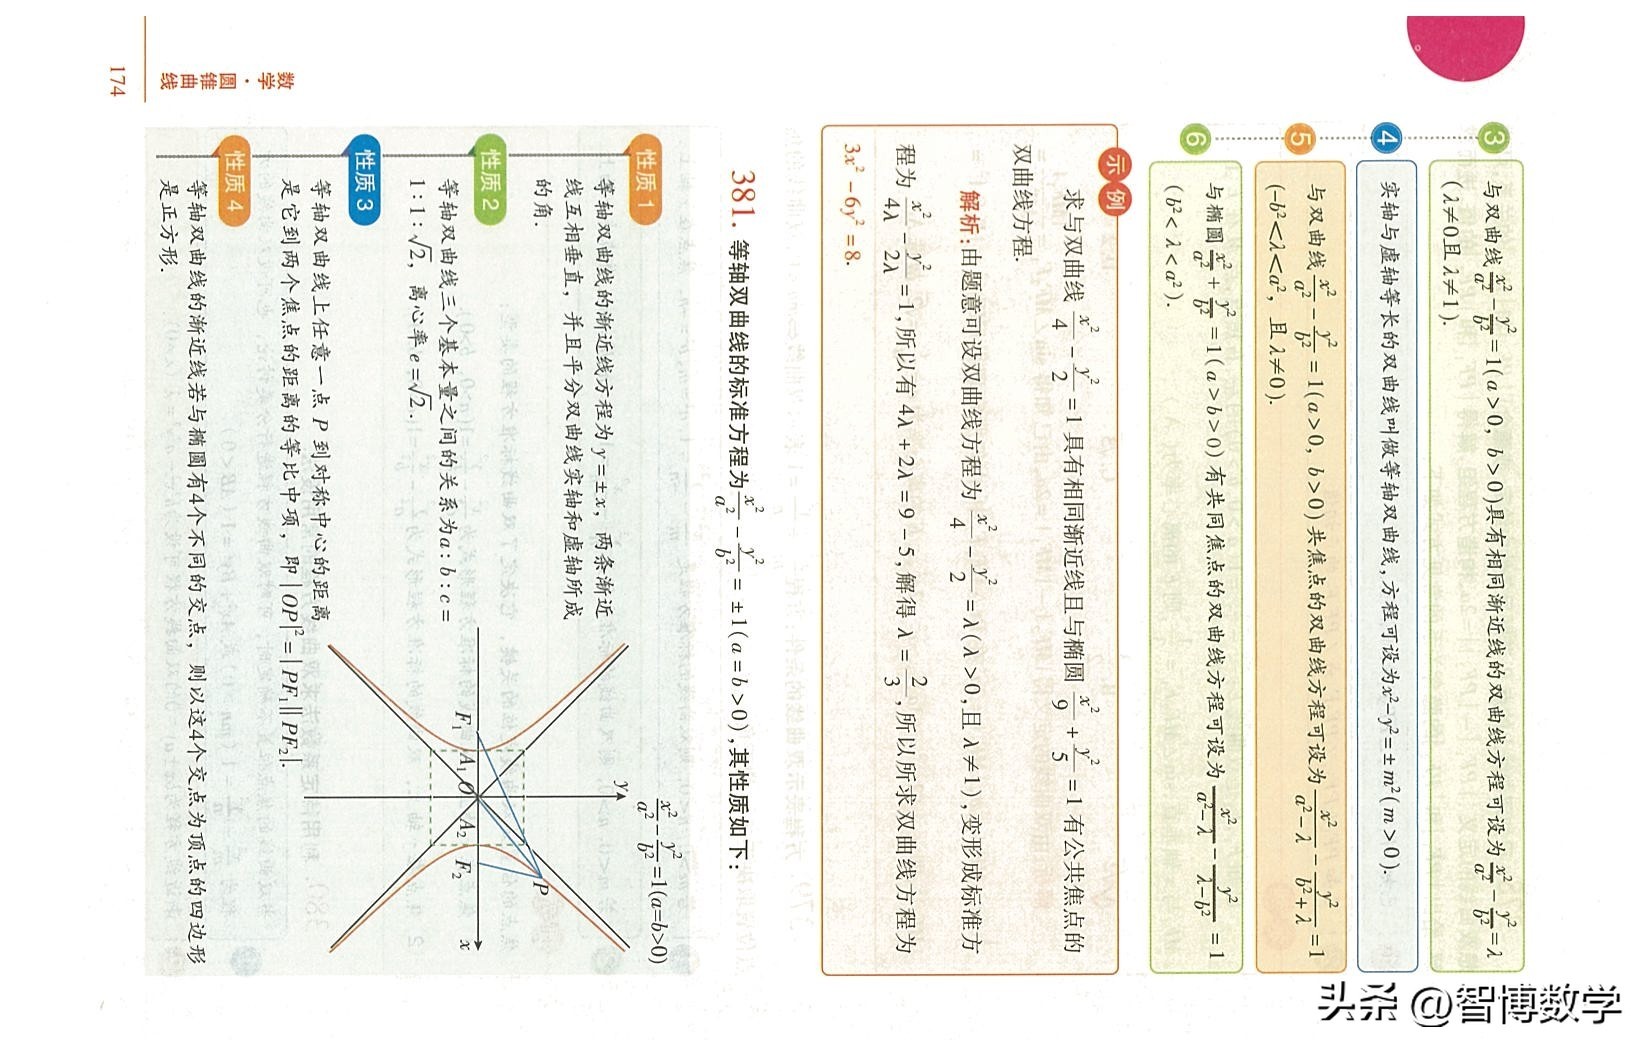 ③ 与双曲线x²/a² - y²/b² = 1(a>0, b>0)具有相同渐近线的双曲线方程可设为x²/a² - y²/b² = λ
(λ≠0且 λ≠1).
④ 实轴与虚轴等长的双曲线叫做等轴双曲线,方程可设为x²-y²=±m²(m>0).
⑤ 与双曲线x²/a² - y²/b² = 1(a>0, b>0)共焦点的双曲线方程可设为x²/(a²-λ) - y²/(b²+λ) = 1
(-b²<λ<a², 且 λ≠0).
⑥ 与椭圆x²/a² + y²/b² = 1(a>b>0)有共同焦点的双曲线方程可设为x²/(a²-λ) - y²/(λ-b²) = 1
(b²<λ<a²).
示例
求与双曲线x²/4 - y²/2 = 1具有相同渐近线且与椭圆x²/9 + y²/5 = 1有公共焦点的
双曲线方程.
解析:由题意可设双曲线方程为x²/4 - y²/2 = λ(λ>0,且 λ≠1),变形成标准方
程为x²/4λ - y²/2λ = 1,所以有4λ+2λ=9-5,解得λ=2/3,所以所求双曲线方程为
3x²-6y²=8.
381. 等轴双曲线的标准方程为x²/a² - y²/b² = ±1(a=b>0),其性质如下:
性质1
等轴双曲线的渐近线方程为y=±x, 两条渐近
线互相垂直, 并且平分双曲线实轴和虚轴所成
的角.
性质2
等轴双曲线三个基本量之间的关系为a:b:c=
1:1:√2, 离心率e=√2..
性质3
等轴双曲线上任意一点P到对称中心的距离
是它到两个焦点的距离的等比中项, 即|OP|²=|PF₁||PF₂|.
性质4
等轴双曲线的渐近线若与椭圆有4个不同的交点, 则以这4个交点为顶点的四边形
是正方形.
x²/a² - y²/b² = 1(a=b>0)
y
P
F₁
A₁
O
A₂
F₂
x
数学·圆锥曲线
174
头条 @智博数学